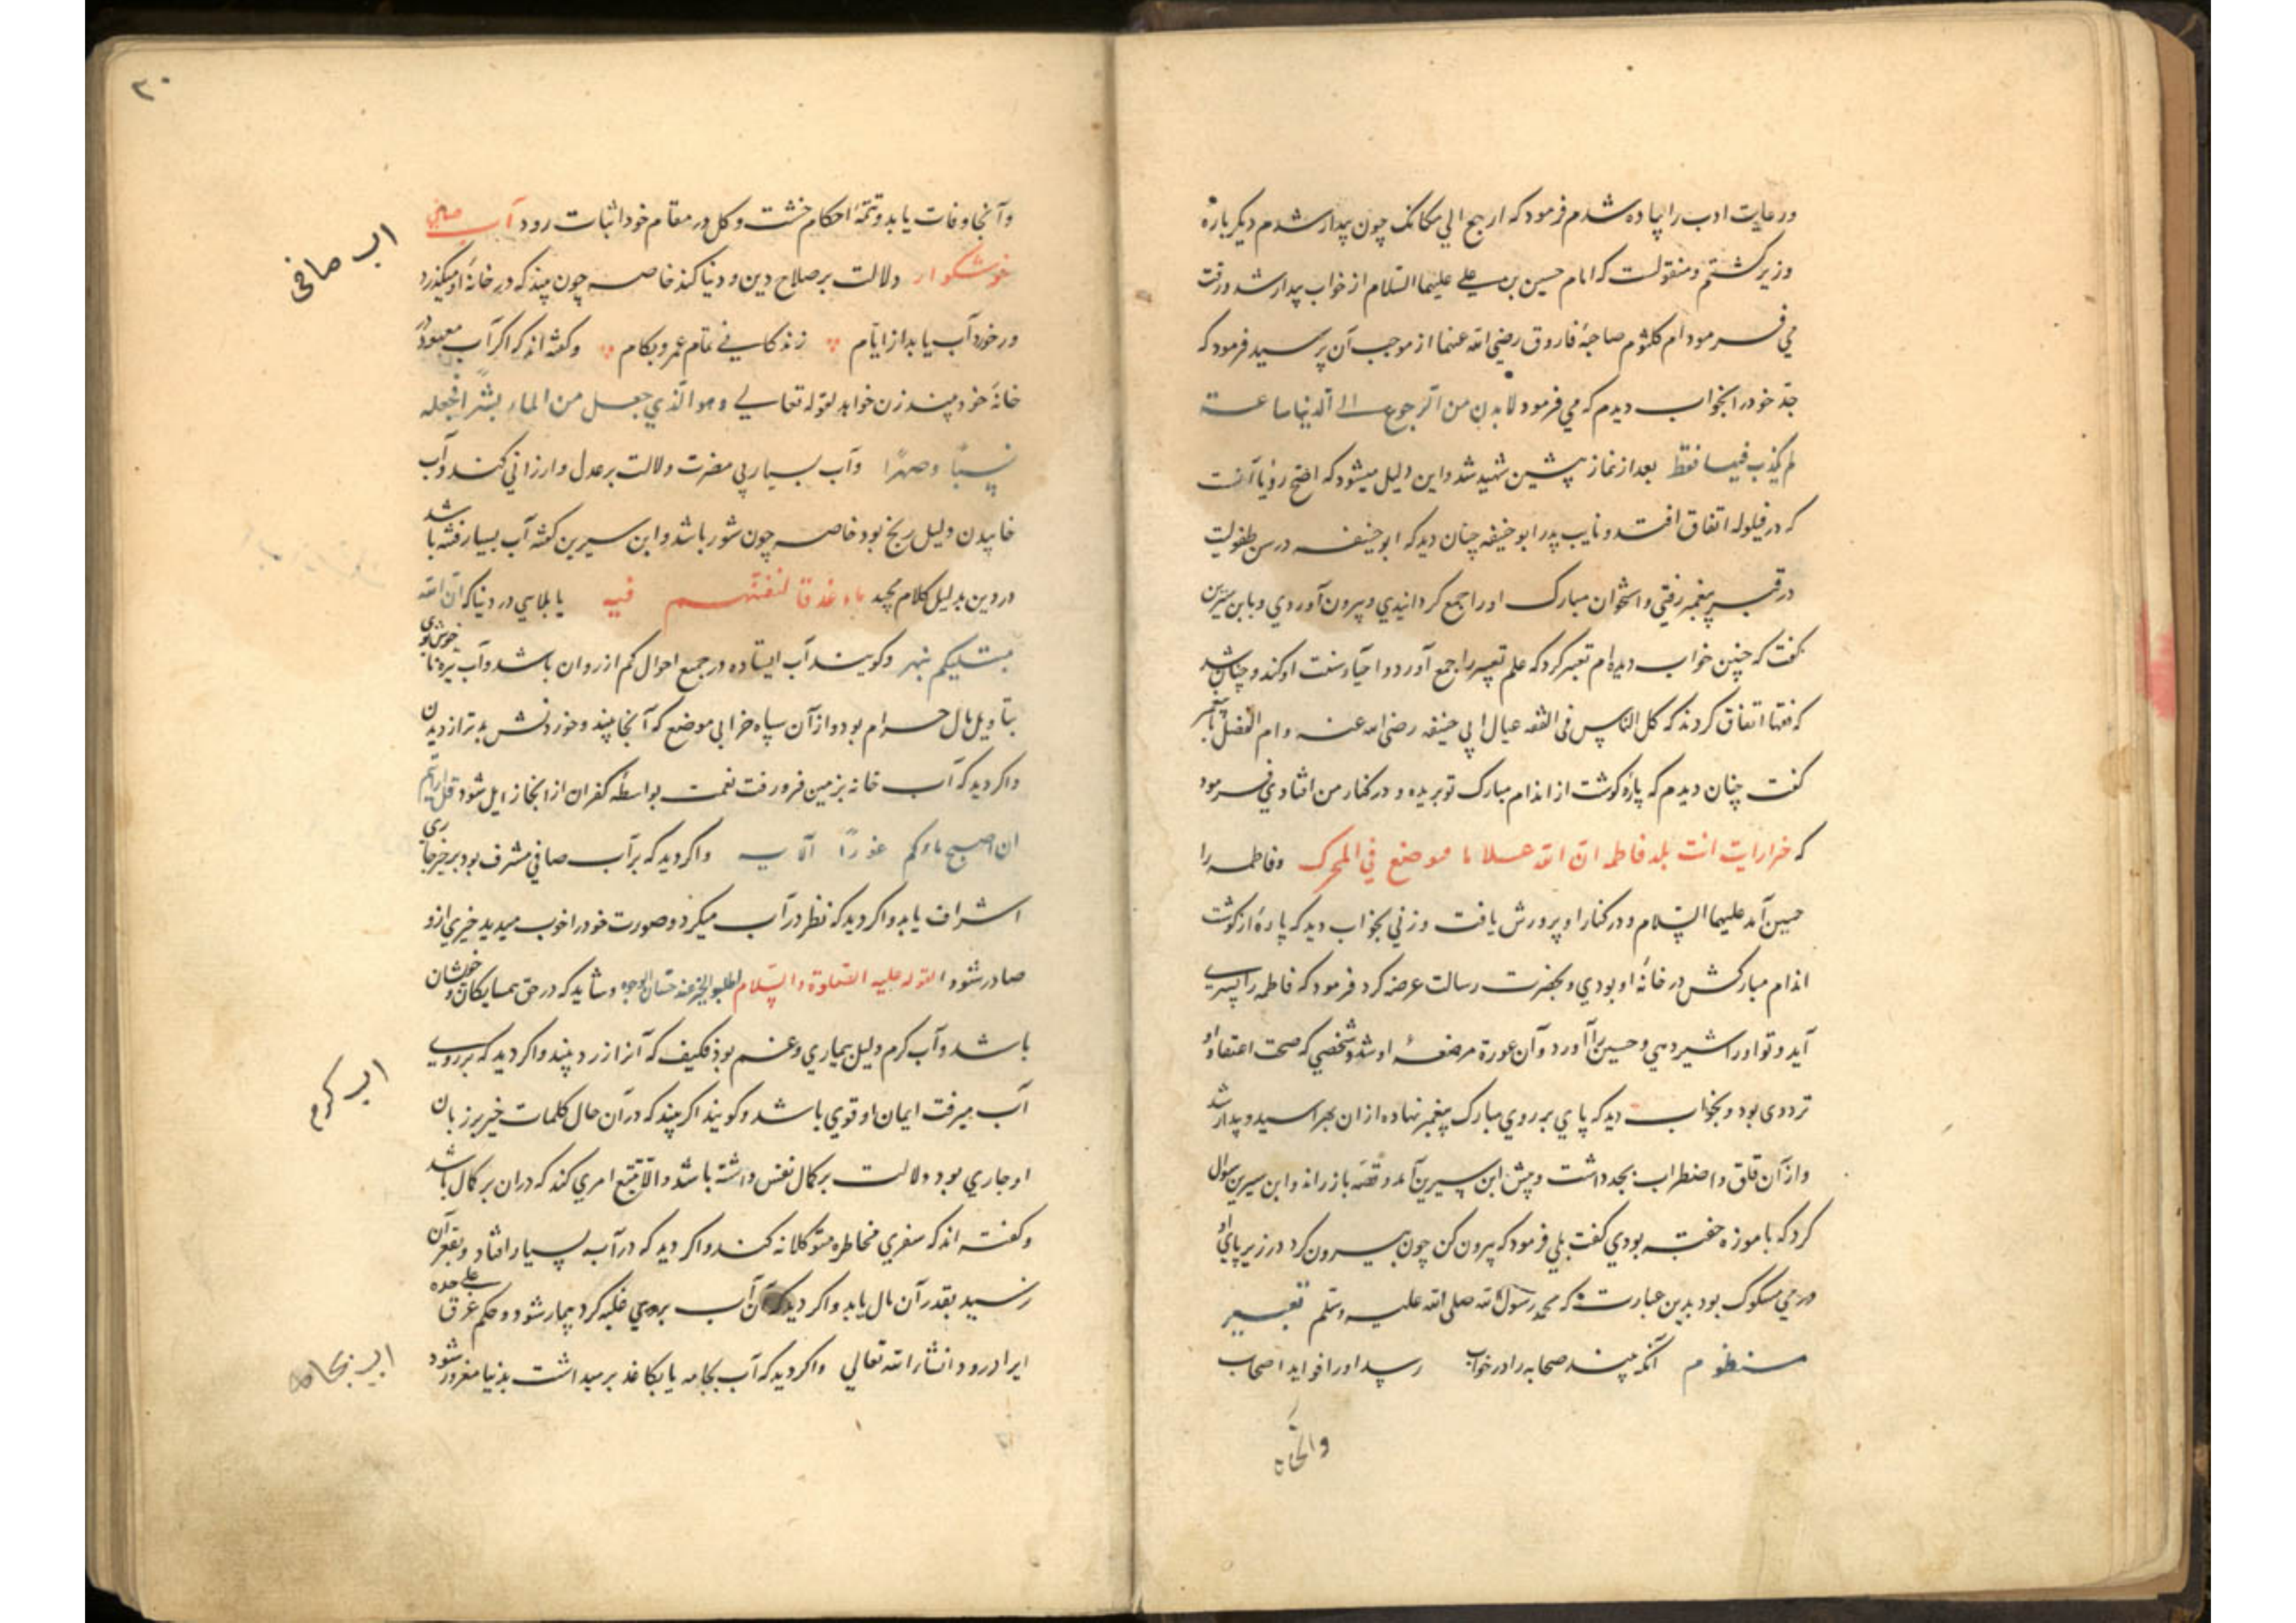 و رعایت ادب را پیاده شدم فرمود که ارجع الي مکانک چون بیدار شدم دیکر باره
وزیر کشتم و منقولست که امام حسین بن علي علیهما السلام از خواب بیدار شد و رقت
مي فرمود ام کلثوم صاحبهٔ فاروق رضي الله عنهما از موجب آن پرسید فرمود که
جد خود را بخواب دیدم که مي فرمود لا بد من الرجوع الی الدنیا ساعة
لم یکذب فیها فقط بعد از نماز پیشین شهید شد و این دلیل میشود که اصح رؤیا آنست
که در قیلوله اتفاق افتد و نایب پدر ابو حنیفه چنان دید که ابو حنیفه در سن طفولیت
در قبر پیغمبر رفتي و استخوان مبارک او را جمع کردانیدي و بیرون آوردي و با ابن سیرین
کفت که چنین خواب دیده ام تعبیر کرد که علم تعبیر را جمع آورد و احیاء سنت او کند و چنان شد
که فقها اتفاق کردند که کل الناس فی الفقه عیال ابي حنیفه رضی الله عنه و ام الفضل با پیغمبر
کفت چنان دیدم که پاره کوشت از اندام مبارک تو بریده و در کنار من افتادي فرمود
که خیرا رایت انت بلد فاطمه ان الله غلاما موضع في و فاطمه را
حسین آمد علیهما السلام و در کنار او پرورش یافت و زني بخواب دید که پاره از کوشت
اندام مبارکش در خانه او بودي و بحضرت رسالت عرضه کرد فرمود که فاطمه را پسری
آید و تو او را شیر دهي و حسین را آورد و آن عورة مرضعهٔ او شد و شخصي که صحت اعتقاد او
تردی بود و بخواب دید که پاي بر روي مبارک پیغمبر نهاده از ان بهراسید و بیدار شد
و از آن قلق و اضطراب بجد داشت و پیش ابن سیرین آمد و قصه باز راند و ابن سیرین سؤال
کرد که با موزه خفته بودي کفت بلي فرمود که بیرون کن چون بیرون کرد در زیر پاي او
درمي مسکوک بود بدین عبارت که محمد رسول الله صلی الله علیه و سلم تعبیر
منظوم آنکه بیند صحابه را در خواب رسد او را فواید اصحاب
و آنجاه
۲۰
و آنجا وفات یابد و تتمهٔ احکام خشت و کل در مقام خود اثبات رود آب صافي
خوشکوار دلالت بر صلاح دین و دنیا کند خاصه چون بیند که در خانهٔ او میکذرد
ور خورد آب یابد از ایام زندکانی تمام عمر و بکام و کفته اند که اکر آب معهود در
خانهٔ خود بیند زن خواهد لقوله تعالی و هو الذي جعل من الماء بشرًا فجعله
نسبًا و صهرًا و آب بسیار بي مضرت دلالت بر عدل و ارزاني کند و آب
خاییدن دلیل رنج بود خاصه چون شور باشد و ابن سیرین کفته آب بسیار فتنه باشد
در دین بدلیل کلام مجید ماء غدقا لنفتنهم فیه یا بلایي در دنیا که ان الله
مبتلیکم بنهر و کویند آب ایستاده در جمیع احوال کم از روان باشد و آب تیره ناخوش بوی
بتاویل مال حرام بود و از آن سیاه خرابي موضع که آنجا بیند و خوردنش بدتر از دیدن
و اکر دید که آب خانه بزمین فرو رفت نعمت بواسطه کفران از انجا زایل شود قل ارایتم
ان اصبح ماؤکم غورًا الآیه و اکر دید که بر آب صافي مشرف بود بر خیر جاری
اشراف یابد و اکر دید که نظر در آب میکرد و صورت خود را خوب میدید خیري از و
صادر شود لقوله علیه الصلوة و السلام اطلبوا الخیر عند حسان الوجوه و شاید که در حق همسایکان و خویشان
باشد و آب کرم دلیل بیماري و غم بود فکیف که آنرا زرد بیند و اکر دید که بر روی
آب میرفت ایمان او قوي باشد و کویند اکر بیند که در آن حال کلمات خیر بر زبان
او جاري بود دلالت بر کمال نفس داشته باشد و الا تتبع امري کند که در ان بر کمال باشد
و کفته اند که سفري مخاطره متوکلانه کند و اکر دید که در آب بسیار افتاد و بقعر آن
رسید بقدر آن مال یابد و اکر دید که آن آب بروی غلبه کرد بیمار شود و حکم غرق علی حده
ایراد رود انشاء الله تعالي و اکر دید که آب بجامه یا بکاغد بر میداشت بدنیا مغرور شود
اب صافی
اب کرم
اب بجامه